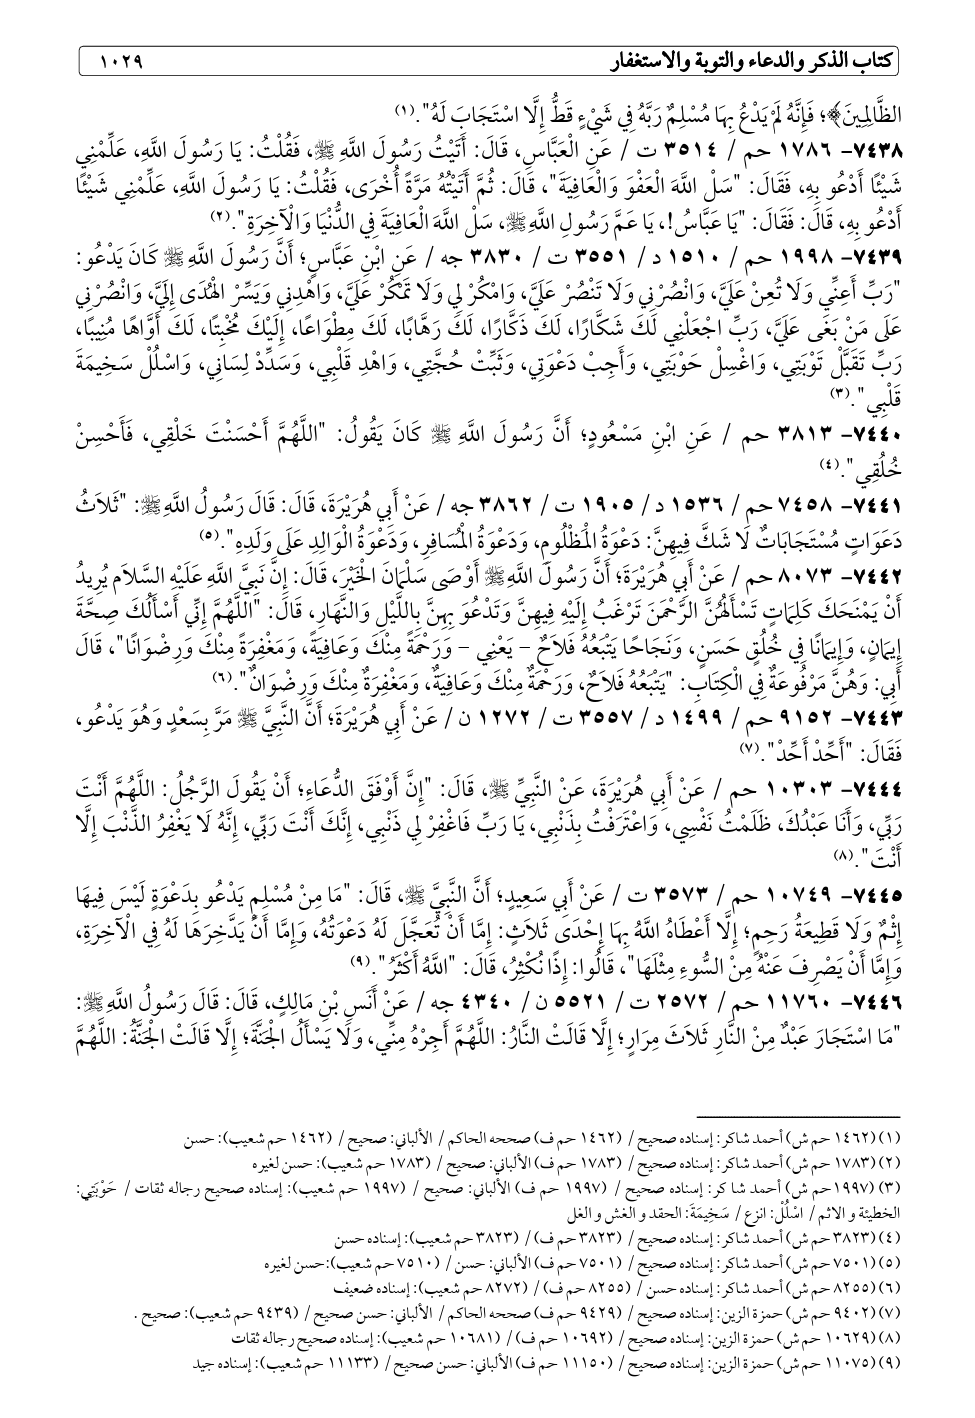 كتاب الذكر والدعاء والتوبة والاستغفار ١٠٢٩
الظَّالِمِينَ﴾؛ فَإِنَّهُ لَمْ يَدْعُ بِهَا مُسْلِمٌ رَبَّهُ فِي شَيْءٍ قَطُّ إِلَّا اسْتَجَابَ لَهُ". (١)
٧٤٣٨- ١٧٨٦ حم / ٣٥١٤ ت / عَنِ الْعَبَّاسِ، قَالَ: أَتَيْتُ رَسُولَ اللَّهِ ﷺ، فَقُلْتُ: يَا رَسُولَ اللَّهِ، عَلِّمْنِي
شَيْئًا أَدْعُو بِهِ، فَقَالَ: "سَلْ اللَّهَ الْعَفْوَ وَالْعَافِيَةَ"، قَالَ: ثُمَّ أَتَيْتُهُ مَرَّةً أُخْرَى، فَقُلْتُ: يَا رَسُولَ اللَّهِ، عَلِّمْنِي شَيْئًا
أَدْعُو بِهِ، قَالَ: فَقَالَ: "يَا عَبَّاسُ!، يَا عَمَّ رَسُولِ اللَّهِ ﷺ، سَلْ اللَّهَ الْعَافِيَةَ فِي الدُّنْيَا وَالْآخِرَةِ". (٢)
٧٤٣٩- ١٩٩٨ حم / ١٥١٠ د / ٣٥٥١ ت / ٣٨٣٠ جه / عَنِ ابْنِ عَبَّاسٍ؛ أَنَّ رَسُولَ اللَّهِ ﷺ كَانَ يَدْعُو:
"رَبِّ أَعِنِّي وَلَا تُعِنْ عَلَيَّ، وَانْصُرْنِي وَلَا تَنْصُرْ عَلَيَّ، وَامْكُرْ لِي وَلَا تَمْكُرْ عَلَيَّ، وَاهْدِنِي وَيَسِّرْ الْهُدَى إِلَيَّ، وَانْصُرْنِي
عَلَى مَنْ بَغَى عَلَيَّ، رَبِّ اجْعَلْنِي لَكَ شَكَّارًا، لَكَ ذَكَّارًا، لَكَ رَهَّابًا، لَكَ مِطْوَاعًا، إِلَيْكَ مُخْبِتًا، لَكَ أَوَّاهًا مُنِيبًا،
رَبِّ تَقَبَّلْ تَوْبَتِي، وَاغْسِلْ حَوْبَتِي، وَأَجِبْ دَعْوَتِي، وَثَبِّتْ حُجَّتِي، وَاهْدِ قَلْبِي، وَسَدِّدْ لِسَانِي، وَاسْلُلْ سَخِيمَةَ
قَلْبِي". (٣)
٧٤٤٠- ٣٨١٣ حم / عَنِ ابْنِ مَسْعُودٍ؛ أَنَّ رَسُولَ اللَّهِ ﷺ كَانَ يَقُولُ: "اللَّهُمَّ أَحْسَنْتَ خَلْقِي، فَأَحْسِنْ
خُلُقِي". (٤)
٧٤٤١- ٧٤٥٨ حم / ١٥٣٦ د/ ١٩٠٥ ت / ٣٨٦٢ جه / عَنْ أَبِي هُرَيْرَةَ، قَالَ: قَالَ رَسُولُ اللَّهِ ﷺ: "ثَلَاثُ
دَعَوَاتٍ مُسْتَجَابَاتٌ لَا شَكَّ فِيهِنَّ: دَعْوَةُ الْمَظْلُومِ، وَدَعْوَةُ الْمُسَافِرِ، وَدَعْوَةُ الْوَالِدِ عَلَى وَلَدِهِ". (٥)
٧٤٤٢- ٨٠٧٣ حم / عَنْ أَبِي هُرَيْرَةَ؛ أَنَّ رَسُولَ اللَّهِ ﷺ أَوْصَى سَلْمَانَ الْخَيْرَ، قَالَ: إِنَّ نَبِيَّ اللَّهِ عَلَيْهِ السَّلَام يُرِيدُ
أَنْ يَمْنَحَكَ كَلِمَاتٍ تَسْأَلُهُنَّ الرَّحْمَنَ تَرْغَبُ إِلَيْهِ فِيهِنَّ وَتَدْعُو بِهِنَّ بِاللَّيْلِ وَالنَّهَارِ، قَالَ: "اللَّهُمَّ إِنِّي أَسْأَلُكَ صِحَّةَ
إِيمَانٍ، وَإِيمَانًا فِي خُلُقٍ حَسَنٍ، وَنَجَاحًا يَتْبَعُهُ فَلَاحٌ – يَعْنِي – وَرَحْمَةً مِنْكَ وَعَافِيَةً، وَمَغْفِرَةً مِنْكَ وَرِضْوَانًا"، قَالَ
أَبِي: وَهُنَّ مَرْفُوعَةٌ فِي الْكِتَابِ: "يَتْبَعُهُ فَلَاحٌ، وَرَحْمَةٌ مِنْكَ وَعَافِيَةٌ، وَمَغْفِرَةٌ مِنْكَ وَرِضْوَانٌ". (٦)
٧٤٤٣- ٩١٥٢ حم / ١٤٩٩ د/ ٣٥٥٧ ت / ١٢٧٢ ن / عَنْ أَبِي هُرَيْرَةَ؛ أَنَّ النَّبِيَّ ﷺ مَرَّ بِسَعْدٍ وَهُوَ يَدْعُو،
فَقَالَ: "أَحِّدْ أَحِّدْ". (٧)
٧٤٤٤- ١٠٣٠٣ حم / عَنْ أَبِي هُرَيْرَةَ، عَنْ النَّبِيِّ ﷺ، قَالَ: "إِنَّ أَوْفَقَ الدُّعَاءِ؛ أَنْ يَقُولَ الرَّجُلُ: اللَّهُمَّ أَنْتَ
رَبِّي، وَأَنَا عَبْدُكَ، ظَلَمْتُ نَفْسِي، وَاعْتَرَفْتُ بِذَنْبِي، يَا رَبِّ فَاغْفِرْ لِي ذَنْبِي، إِنَّكَ أَنْتَ رَبِّي، إِنَّهُ لَا يَغْفِرُ الذَّنْبَ إِلَّا
أَنْتَ". (٨)
٧٤٤٥- ١٠٧٤٩ حم / ٣٥٧٣ ت / عَنْ أَبِي سَعِيدٍ؛ أَنَّ النَّبِيَّ ﷺ، قَالَ: "مَا مِنْ مُسْلِمٍ يَدْعُو بِدَعْوَةٍ لَيْسَ فِيهَا
إِثْمٌ وَلَا قَطِيعَةُ رَحِمٍ؛ إِلَّا أَعْطَاهُ اللَّهُ بِهَا إِحْدَى ثَلَاثٍ: إِمَّا أَنْ تُعَجَّلَ لَهُ دَعْوَتُهُ، وَإِمَّا أَنْ يَدَّخِرَهَا لَهُ فِي الْآخِرَةِ،
وَإِمَّا أَنْ يَصْرِفَ عَنْهُ مِنْ السُّوءِ مِثْلَهَا"، قَالُوا: إِذًا نُكْثِرُ، قَالَ: "اللَّهُ أَكْثَرُ". (٩)
٧٤٤٦- ١١٧٦٠ حم / ٢٥٧٢ ت / ٥٥٢١ ن / ٤٣٤٠ جه / عَنْ أَنَسِ بْنِ مَالِكٍ، قَالَ: قَالَ رَسُولُ اللَّهِ ﷺ:
"مَا اسْتَجَارَ عَبْدٌ مِنْ النَّارِ ثَلَاثَ مِرَارٍ؛ إِلَّا قَالَتْ النَّارُ: اللَّهُمَّ أَجِرْهُ مِنِّي، وَلَا يَسْأَلُ الْجَنَّةَ؛ إِلَّا قَالَتْ الْجَنَّةُ: اللَّهُمَّ
(١) (١٤٦٢ حم ش) أحمد شاكر: إسناده صحيح / (١٤٦٢ حم ف) صححه الحاكم / الألباني: صحيح / (١٤٦٢ حم شعيب): حسن
(٢) (١٧٨٣ حم ش) أحمد شاكر: إسناده صحيح / (١٧٨٣ حم ف) الألباني: صحيح / (١٧٨٣ حم شعيب): حسن لغيره
(٣) (١٩٩٧حم ش) أحمد شاكر: إسناده صحيح / (١٩٩٧ حم ف) الألباني: صحيح / (١٩٩٧ حم شعيب): إسناده صحيح رجاله ثقات / حَوْبَتِي:
الخطيئة و الاثم / اسْلُلْ: انزع / سَخِيمَةَ: الحقد و الغش و الغل
(٤) (٣٨٢٣ حم ش) أحمد شاكر: إسناده صحيح / (٣٨٢٣ حم ف) / (٣٨٢٣ حم شعيب): إسناده حسن
(٥) (٧٥٠١ حم ش) أحمد شاكر: إسناده صحيح / (٧٥٠١ حم ف) الألباني: حسن / (٧٥١٠ حم شعيب):حسن لغيره
(٦) (٨٢٥٥ حم ش) أحمد شاكر: إسناده حسن / (٨٢٥٥ حم ف) / (٨٢٧٢ حم شعيب): إسناده ضعيف
(٧) (٩٤٠٢ حم ش) حمزة الزين: إسناده صحيح / (٩٤٢٩ حم ف) صححه الحاكم / الألباني: حسن صحيح / (٩٤٣٩ حم شعيب): صحيح .
(٨) (١٠٦٢٩ حم ش) حمزة الزين: إسناده صحيح / (١٠٦٩٢ حم ف) / (١٠٦٨١ حم شعيب): إسناده صحيح رجاله ثقات
(٩) (١١٠٧٥ حم ش) حمزة الزين: إسناده صحيح / (١١١٥٠ حم ف) الألباني: حسن صحيح / (١١١٣٣ حم شعيب): إسناده جيد